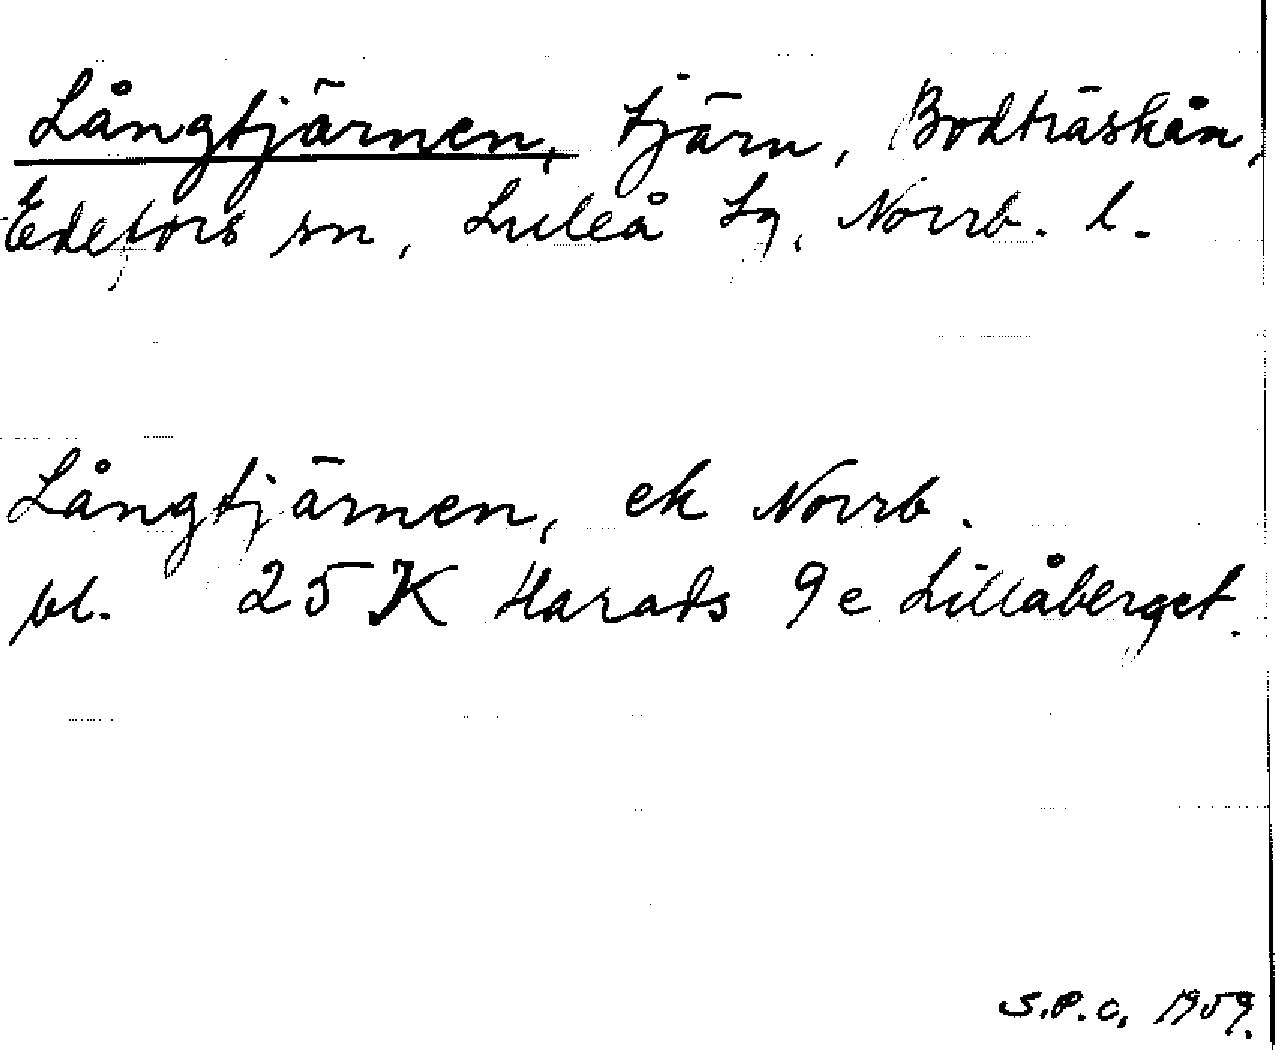 Långtjärnen, tjärn, Bodträskån,
Edefors sn, Luleå tg, Norrb. l.
Långtjärnen, ek Norrb.
bl. 25 K Harads 9 e Lillåberget.
S.P.C. 1959.